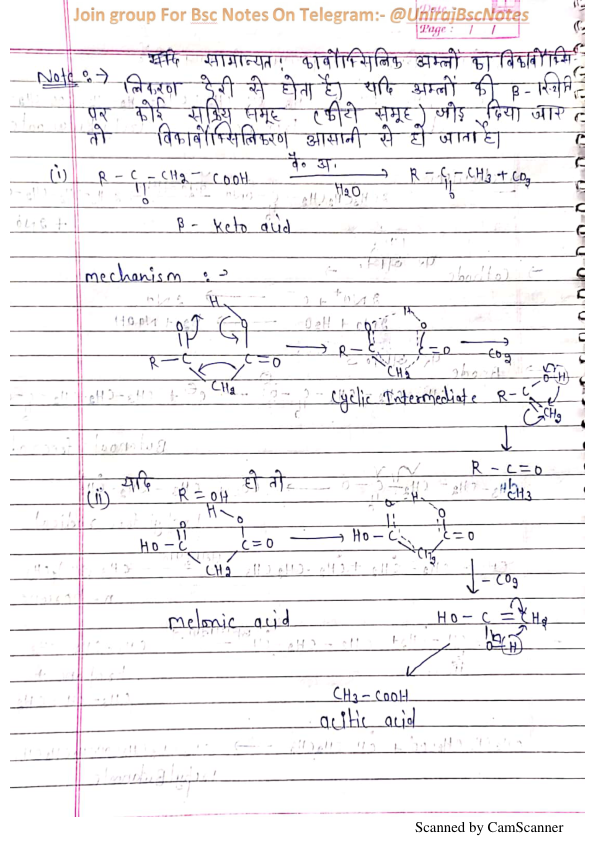 Join group For Bsc Notes On Telegram:- @UnirajBscNotes
Page: / /
यदि सामान्यत: कार्बोक्सिलिक अम्लों का विकार्बोक्सि
Note :→ लिकरण देरी से होता है। यदि अम्लों की β-स्थिति
पर कोई सक्रिय समूह (कीटो समूह) जोड़ दिया जाए
तो विकार्बोक्सिलिकरण आसानी से हो जाता है।
(i) R - C - CH2 - COOH वै. अ. H2O R - C - CH3 + CO2
O O
β - Keto acid
mechanism :→
H
O O O H O
R - C C = O R - C C = O CO2
CH2 CH2 O H
Cyclic Intermediate R - C
CH2
R - C = O
CH3
(ii) यदि R = OH हो तो
H - O O H O
HO - C C = O HO - C C = O
CH2 CH2
- CO2
melonic acid HO - C = CH2
O H
CH3 - COOH
acitic acid
Scanned by CamScanner